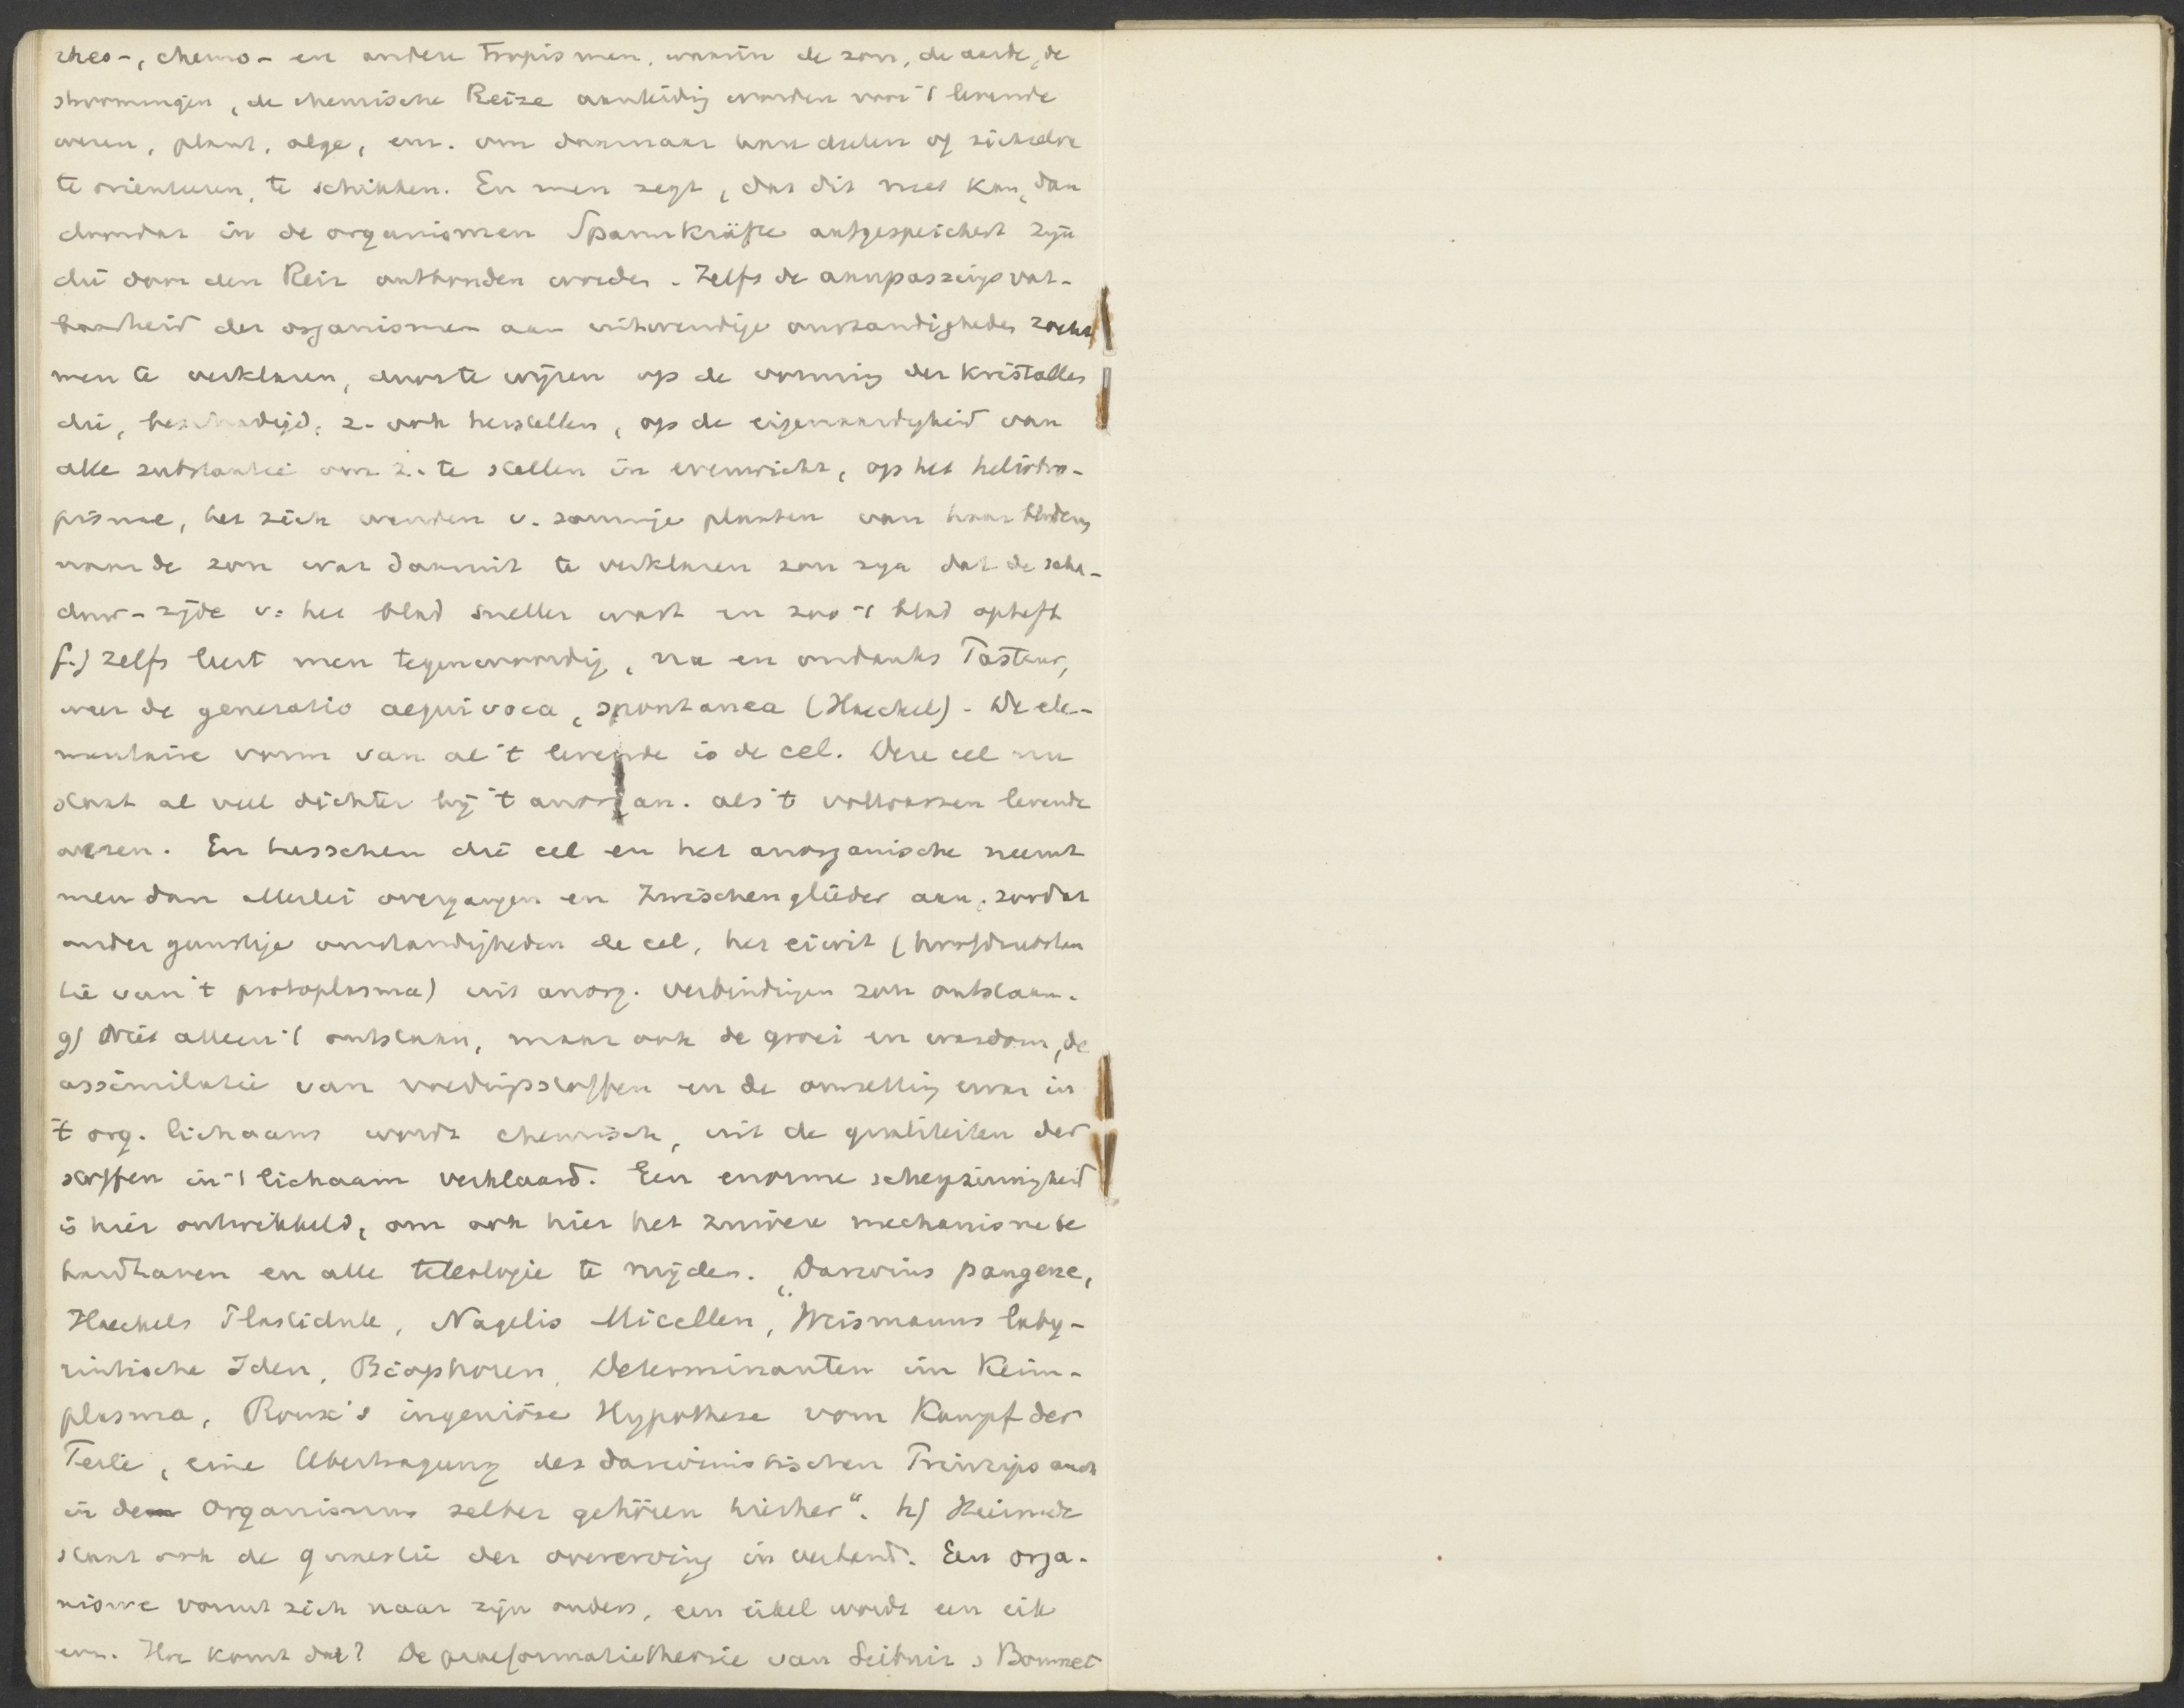 rheo-, chemo- en andere tropismen, waarin de zon, de aarde, de
stroomingen, de chemische Reize aanleidig worden voor 't levende
wezen, plant, alge, enz. om daarnaar haar deelen of zichzelve
te orienteeren, te schikken. En men zegt, dat dit niet kan, dan
doordat in de organismen Spannkräfte aufgespeichert zijn
die door den Reiz entbonden worden. Zelfs de aanpassings vat-
baarheid der organismen aan uitwendige omstandigheden zocht
men te verklaren, door te wijzen op de vorming der kristallen
die, beschadigd, z. ook herstellen, op de eigenaardigheid van
alle substantie om z. te stellen in evenwicht, op het heliotro-
pisme, het zich wenden v. sommige planten van haar bladeren
naar de zon wat daaruit te verklaren zou zijn dat de scha-
duw-zijde v. het blad sneller wast en zoo 't blad opheft
f.) Zelfs leert men tegenwoordig, na en ondanks Pasteur,
weer de generatio aequivoca, spontanea (Haeckel). De ele-
mentaire vorm van al 't levende is de cel. Deze cel nu
staat al veel dichter bij 't anorgan. als 't volwassen levende
wezen. En tusschen die cel en het anorganische neemt
men dan allerlei overgangen en Zwischenglieder aan, zoodat
onder gunstige omstandigheden de cel, het eiwit (hoofdsubstan
tie van 't protoplasma) uit anorg. verbindingen zou ontstaan.
g) Niet alleen 't ontstaan, maar ook de groei en wasdom, de
assimilatie van voedingsstoffen en de omzetting ervan in
't org. lichaam wordt chemisch, uit de qualiteiten der
stoffen in 't lichaam verklaard. Een enorme scherpzinnigheid
is hier ontwikkeld, om ook hier het zuivere mechanisme te
handhaven en alle teleologie te mijden. „Darwins pangene,
Haeckels Plastidule, Nagelis Micellen, Weismanns laby-
rintische Iden, Biophoren, Determinanten im Keim-
plasma, Roux's ingeniöse Hypothese vom Kampf der
Teile, eine Übertragung des darwinistischen Prinzips auch
in den Organismus selber gehören hierher". h) Hiermede
staat ook de quaestie der overerving in verband. Een orga-
nisme vormt zich naar zijn ouders, een eikel wordt een eik
enz. Hoe komt dat? De praeformatietheorie van Leibniz, Bonnet